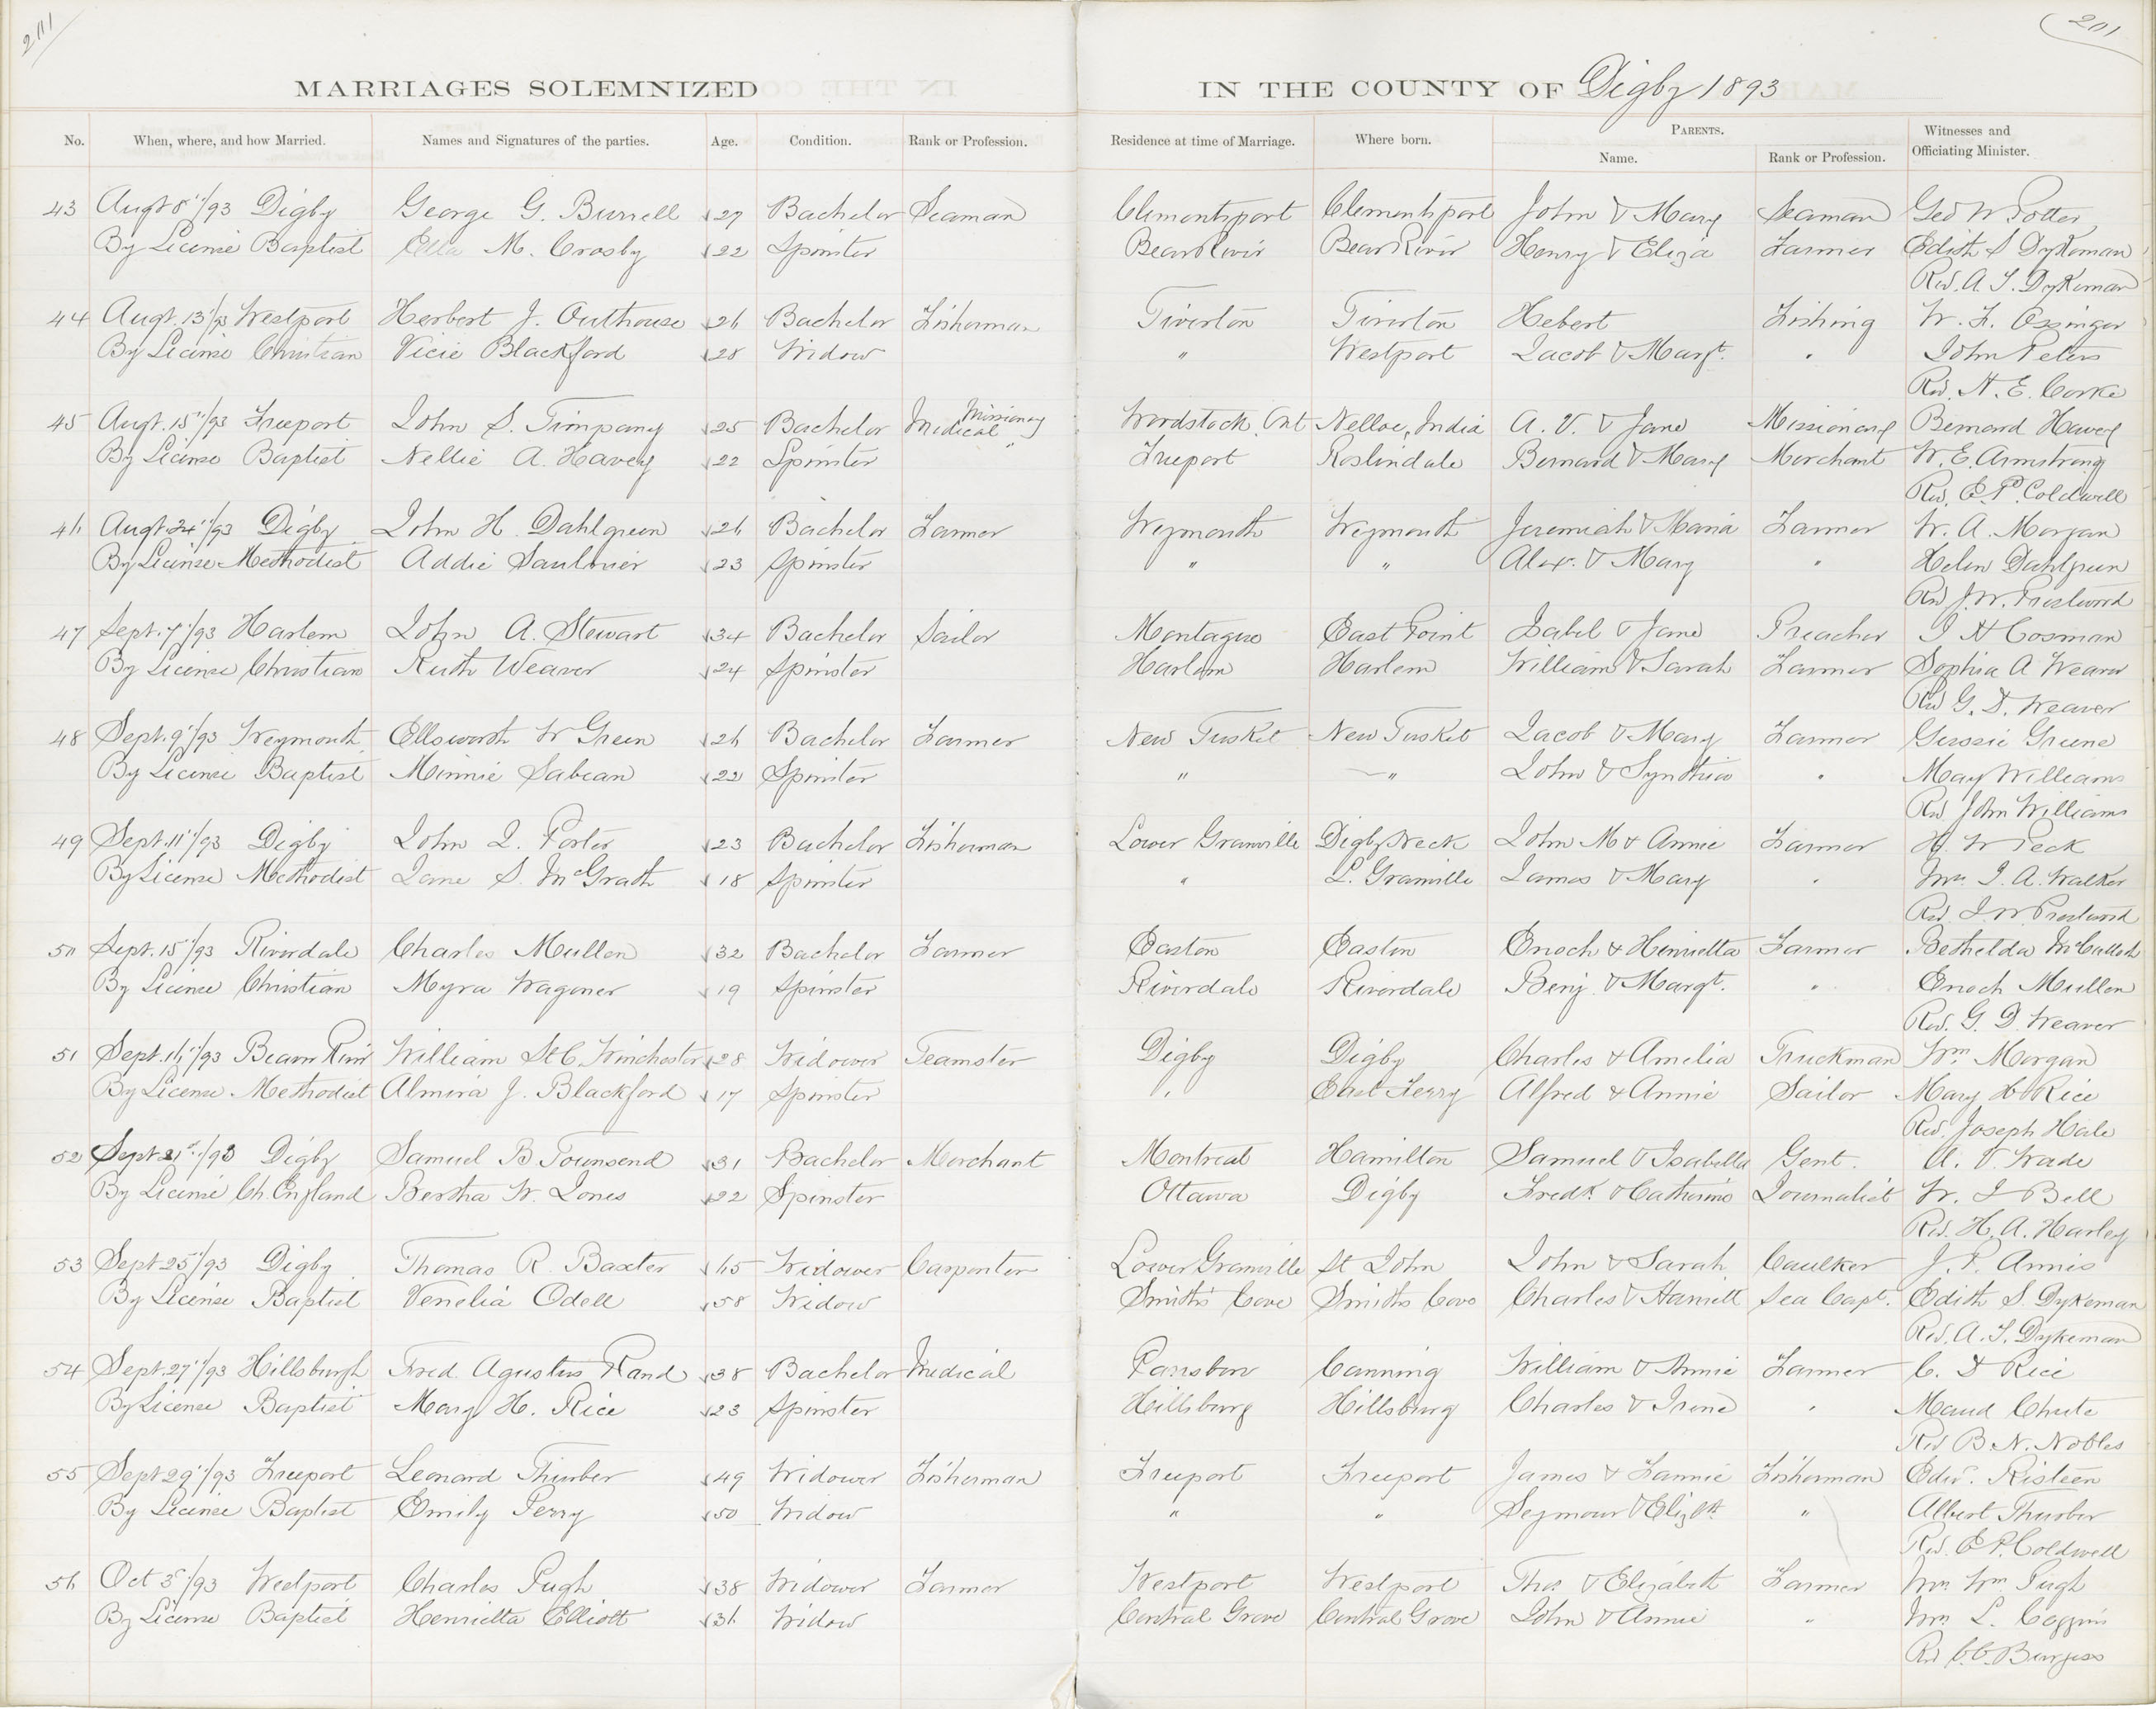 201
201
MARRIAGES SOLEMNIZED IN THE COUNTY OF Digby 1893
No. When, where, and how Married. Names and Signatures of the parties. Age. Condition. Rank or Profession. Residence at time of Marriage. Where born. PARENTS. Name. Rank or Profession. Witnesses and Officiating Minister.
43 Augt 8"/93 Digby George G. Burrell 27 Bachelor Seaman Clementsport Clementsport John & Mary Seaman Geo W Potter
By License Baptist Ella M. Crosby 22 Spinster Bear River Bear River Henry & Eliza Farmer Edith S Dykeman
Rev. A. T. Dykeman
44 Augt. 13"/93 Westport Herbert J. Outhouse 26 Bachelor Fisherman Tiverton Tiverton Hebert Fishing W. F. Ossinger
By License Christian Vicie Blackford 28 Widow " Westport Jacob & Margt. " John Peters
Rev. H. E. Cooke
45 Augt. 15"/93 Freeport John S. Timpany 25 Bachelor Medical Missionary Woodstock, Ont Nelloe, India A. V. & Jane Missionary Bernard Havey
By License Baptist Nellie A. Havey 22 Spinster " Freeport Roslindale Bernard & Mary Merchant W. E. Armstrong
Rev. E. P. Coldwell
46 Augt 24"/93 Digby John H. Dahlgreen 26 Bachelor Farmer Weymouth Weymouth Jeremiah & Maria Farmer W. A. Morgan
By License Methodist Addie Saulnier 23 Spinster " " Alex. & Mary " Helen Dahlgreen
Rev J. W. Prestwood
47 Sept. 7"/93 Harlem John A. Stewart 34 Bachelor Sailor Montague East Point Isabel & Jane Preacher I H Cosman
By License Christian Ruth Weaver 24 Spinster Harlem Harlem William & Sarah Farmer Sophia A Weaver
Rev G. D. Weaver
48 Sept. 9"/93 Weymouth Ellsworth W Green 26 Bachelor Farmer New Tusket New Tusket Jacob & Mary Farmer Gussie Greene
By License Baptist Minnie Sabean 22 Spinster " " John & Synthia " May Williams
Rev John Williams
49 Sept. 11"/93 Digby John I. Porter 23 Bachelor Fisherman Lower Granville Digby Neck John M & Annie Farmer H W Peck
By License Methodist Jane S. McGrath 18 Spinster " L. Granville James & Mary " Mrs. J. A. Walker
Rev. J W Prestwood
50 Sept. 15"/93 Riverdale Charles Mullen 32 Bachelor Farmer Easton Easton Enoch & Henrietta Farmer Bethelda McCulloch
By License Christian Myra Wagoner 19 Spinster Riverdale Riverdale Benj. & Margt. " Enoch Mullen
Rev. G. D. Weaver
51 Sept. 16"/93 Bear River William St C. Winchester 28 Widower Teamster Digby Digby Charles & Amelia Truckman Wm Morgan
By License Methodist Almira J. Blackford 17 Spinster " East Ferry Alfred & Annie Sailor Mary H Rice
Rev. Joseph Hale
52 Sept 21st/93 Digby Samuel B Townsend 31 Bachelor Merchant Montreal Hamilton Samuel & Isabella Gent. A. V. Wade
By License Ch. England Bertha W. Jones 22 Spinster Ottawa Digby Fredk. & Catherine Journalist W. J Bell
Rev. H. A. Harley
53 Sept 25"/93 Digby Thomas R. Baxter 65 Widower Carpenter Lower Granville St John John & Sarah Caulker J. P. Annis
By License Baptist Venelia Odell 58 Widow Smith's Cove Smiths Cove Charles & Harriett Sea Capt. Edith S. Dykeman
Rev. A. T. Dykeman
54 Sept. 27"/93 Hillsburgh Fred. Agustus Rand 38 Bachelor Medical Parrsboro Canning William & Annie Farmer C. D Rice
By License Baptist Mary H. Rice 23 Spinster Hillsburg Hillsburg Charles & Irene " Maud Chute
Rev B. N. Nobles
55 Sept 29"/93 Freeport Leonard Thurber 49 Widower Fisherman Freeport Freeport James & Fannie Fisherman Edw. Risteen
By License Baptist Emily Perry 50 Widow " " Seymour & Elizth " Albert Thurber
Rev. E. P. Coldwell
56 Oct 3"/93 Westport Charles Pugh 38 Widower Farmer Westport Westport Thos & Elizabeth Farmer Mrs. Wm. Pugh
By License Baptist Henrietta Elliott 36 Widow Central Grove Central Grove John & Annie " Mrs L. Coggins
Rev C. C. Burgess